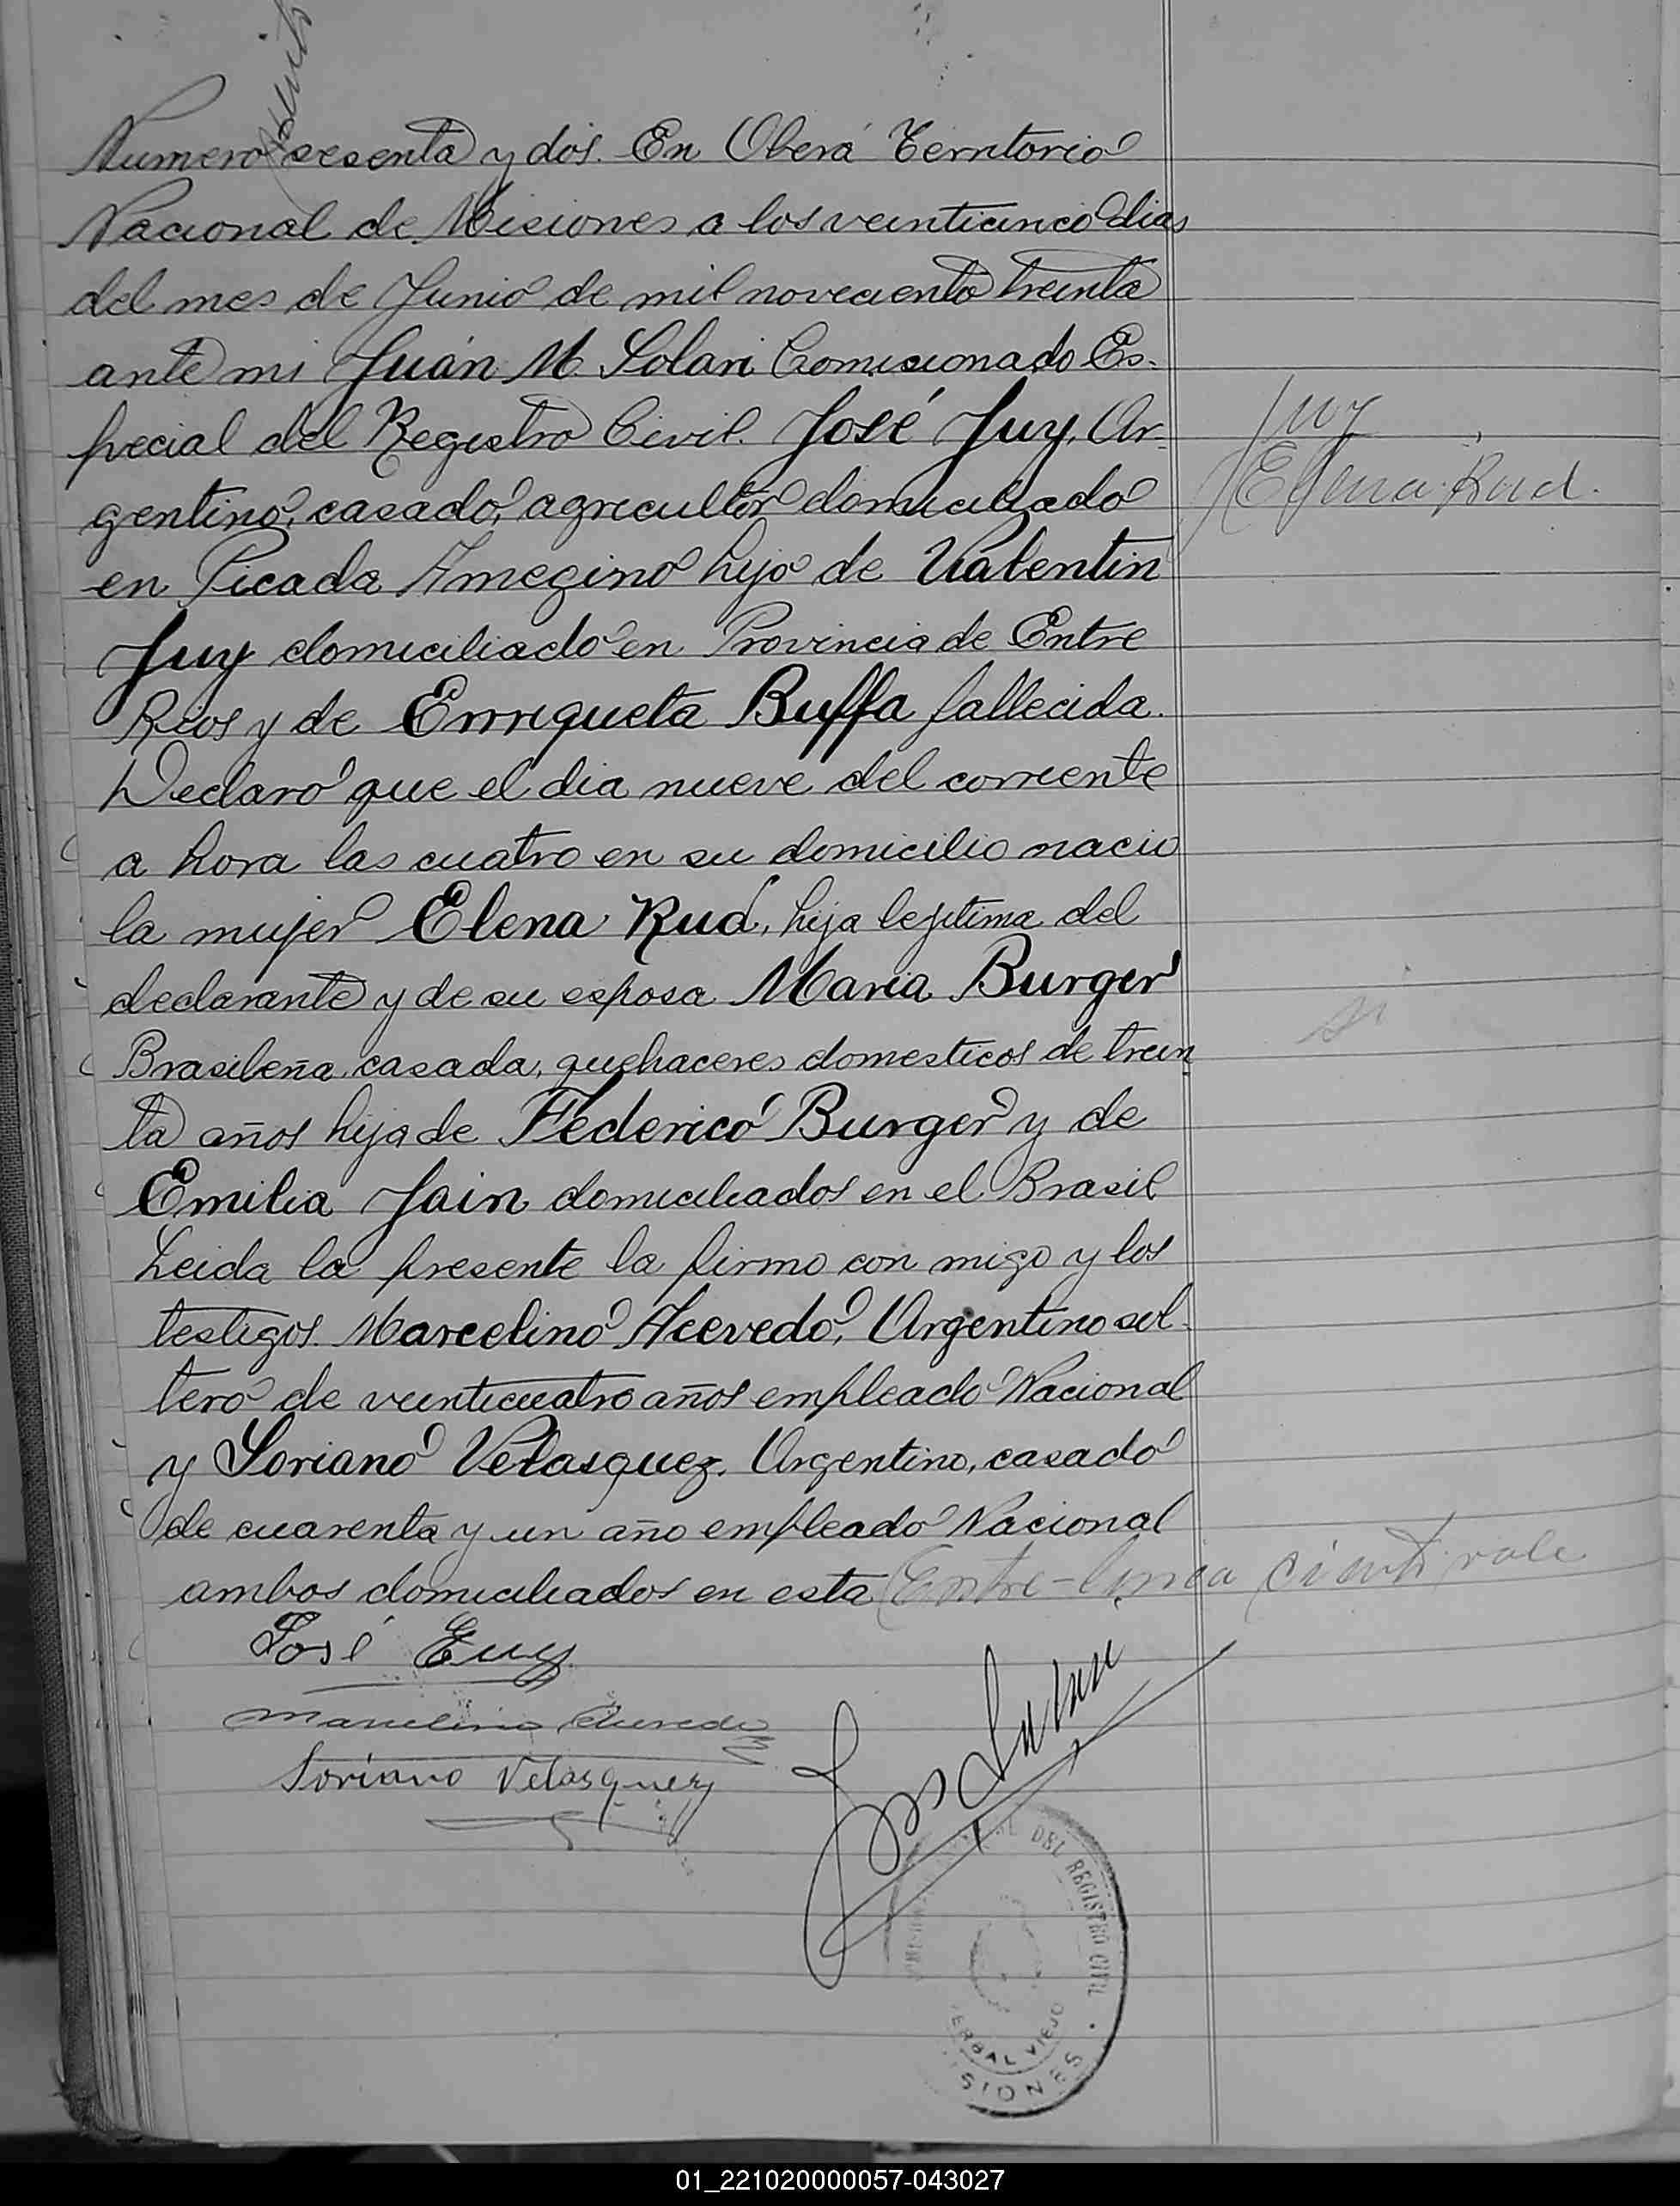 Numero sesenta y dos. En Oberá Territorio
Nacional de Misiones a los veinticinco dias
del mes de Junio de mil noveciento treinta
ante mi Juan M. Solari Comisionado Es-
pecial del Registro Civil. José Juy, Ar-
gentino, casado, agricultor domiciliado
en Picada Amegino hijo de Valentin
Juy domiciliado en Provincia de Entre
Rios y de Enriqueta Buffa fallecida.
Declaró que el dia nueve del corriente
a hora las cuatro en su domicilio nacio
la mujer Elena Rud, hija lejitima del
declarante y de su esposa Maria Burger
Brasileña, casada, quehaceres domesticos de trein
ta años hija de Federico Burger y de
Emilia Jain domiciliados en el Brasil
Leida la presente la firmo con migo y los
testigos. Marcelino Acevedo, Argentino sol-
tero de veinticuatro años empleado Nacional
y Soriano Velasquez, Argentino, casado
de cuarenta y un año empleado Nacional
ambos domiciliados en esta Entre-linia vale
José Euy
Marcelino Acevedo
Soriano Velasquez
Juy
Elena Rud.
si
DEL REGISTRO CIVIL
ERBAL VIEJO
SIONES
01_221020000057-043027